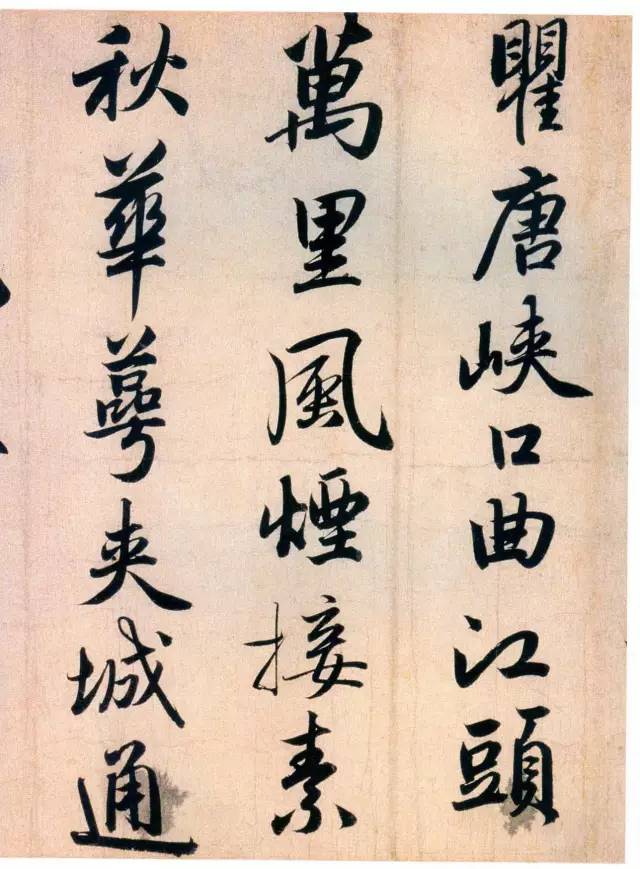 瞿唐峽口曲江頭
萬里風煙接素
秋華萼夾城通